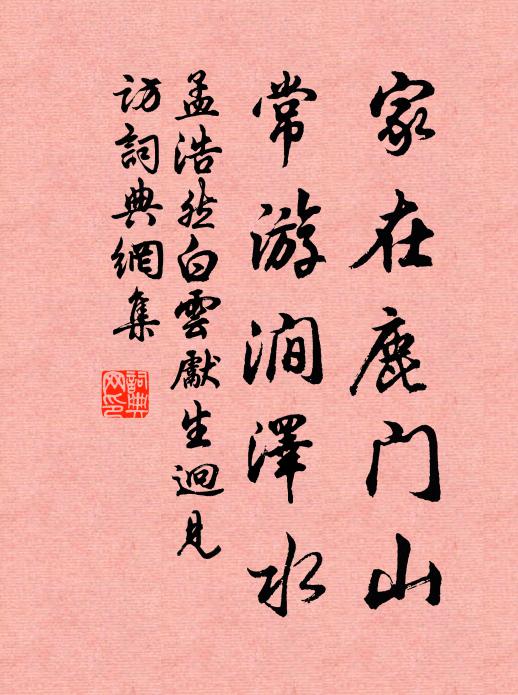 家在鹿门山
常游涧澤水
孟浩然白雲獻生迴見
访詞典網集
詞典
网印